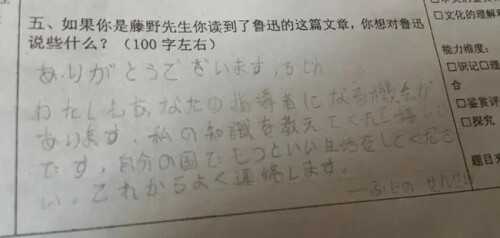 五、如果你是藤野先生你读到了鲁迅的这篇文章，你想对鲁迅
说些什么？（100字左右）
ありがとうございます，ろじん
わたしもあなたの指導者になる機会が
あります．私の知識を教えてくたて嬉しい
です，自分の国でもっといい生活をしてくださ
い。これからもよく連絡します。
——ふじの せんせい
□文化的理解
能力维度：
□识记□理
合
□鉴赏评
□探究
题目来